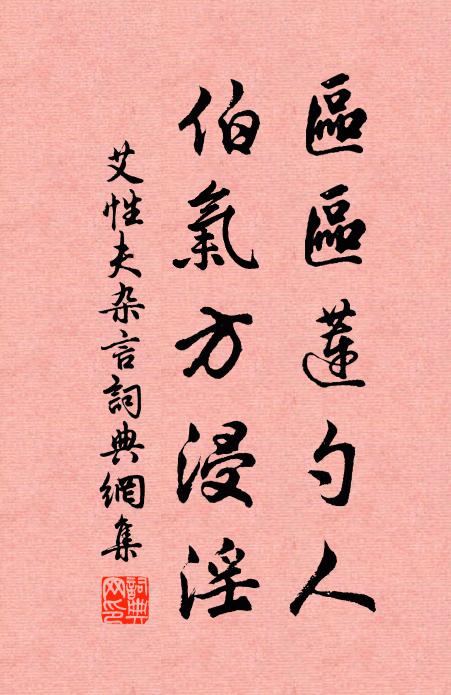 區區蓮勺人
伯氣方浸淫
艾性夫杂言詞典網集
詞典网印